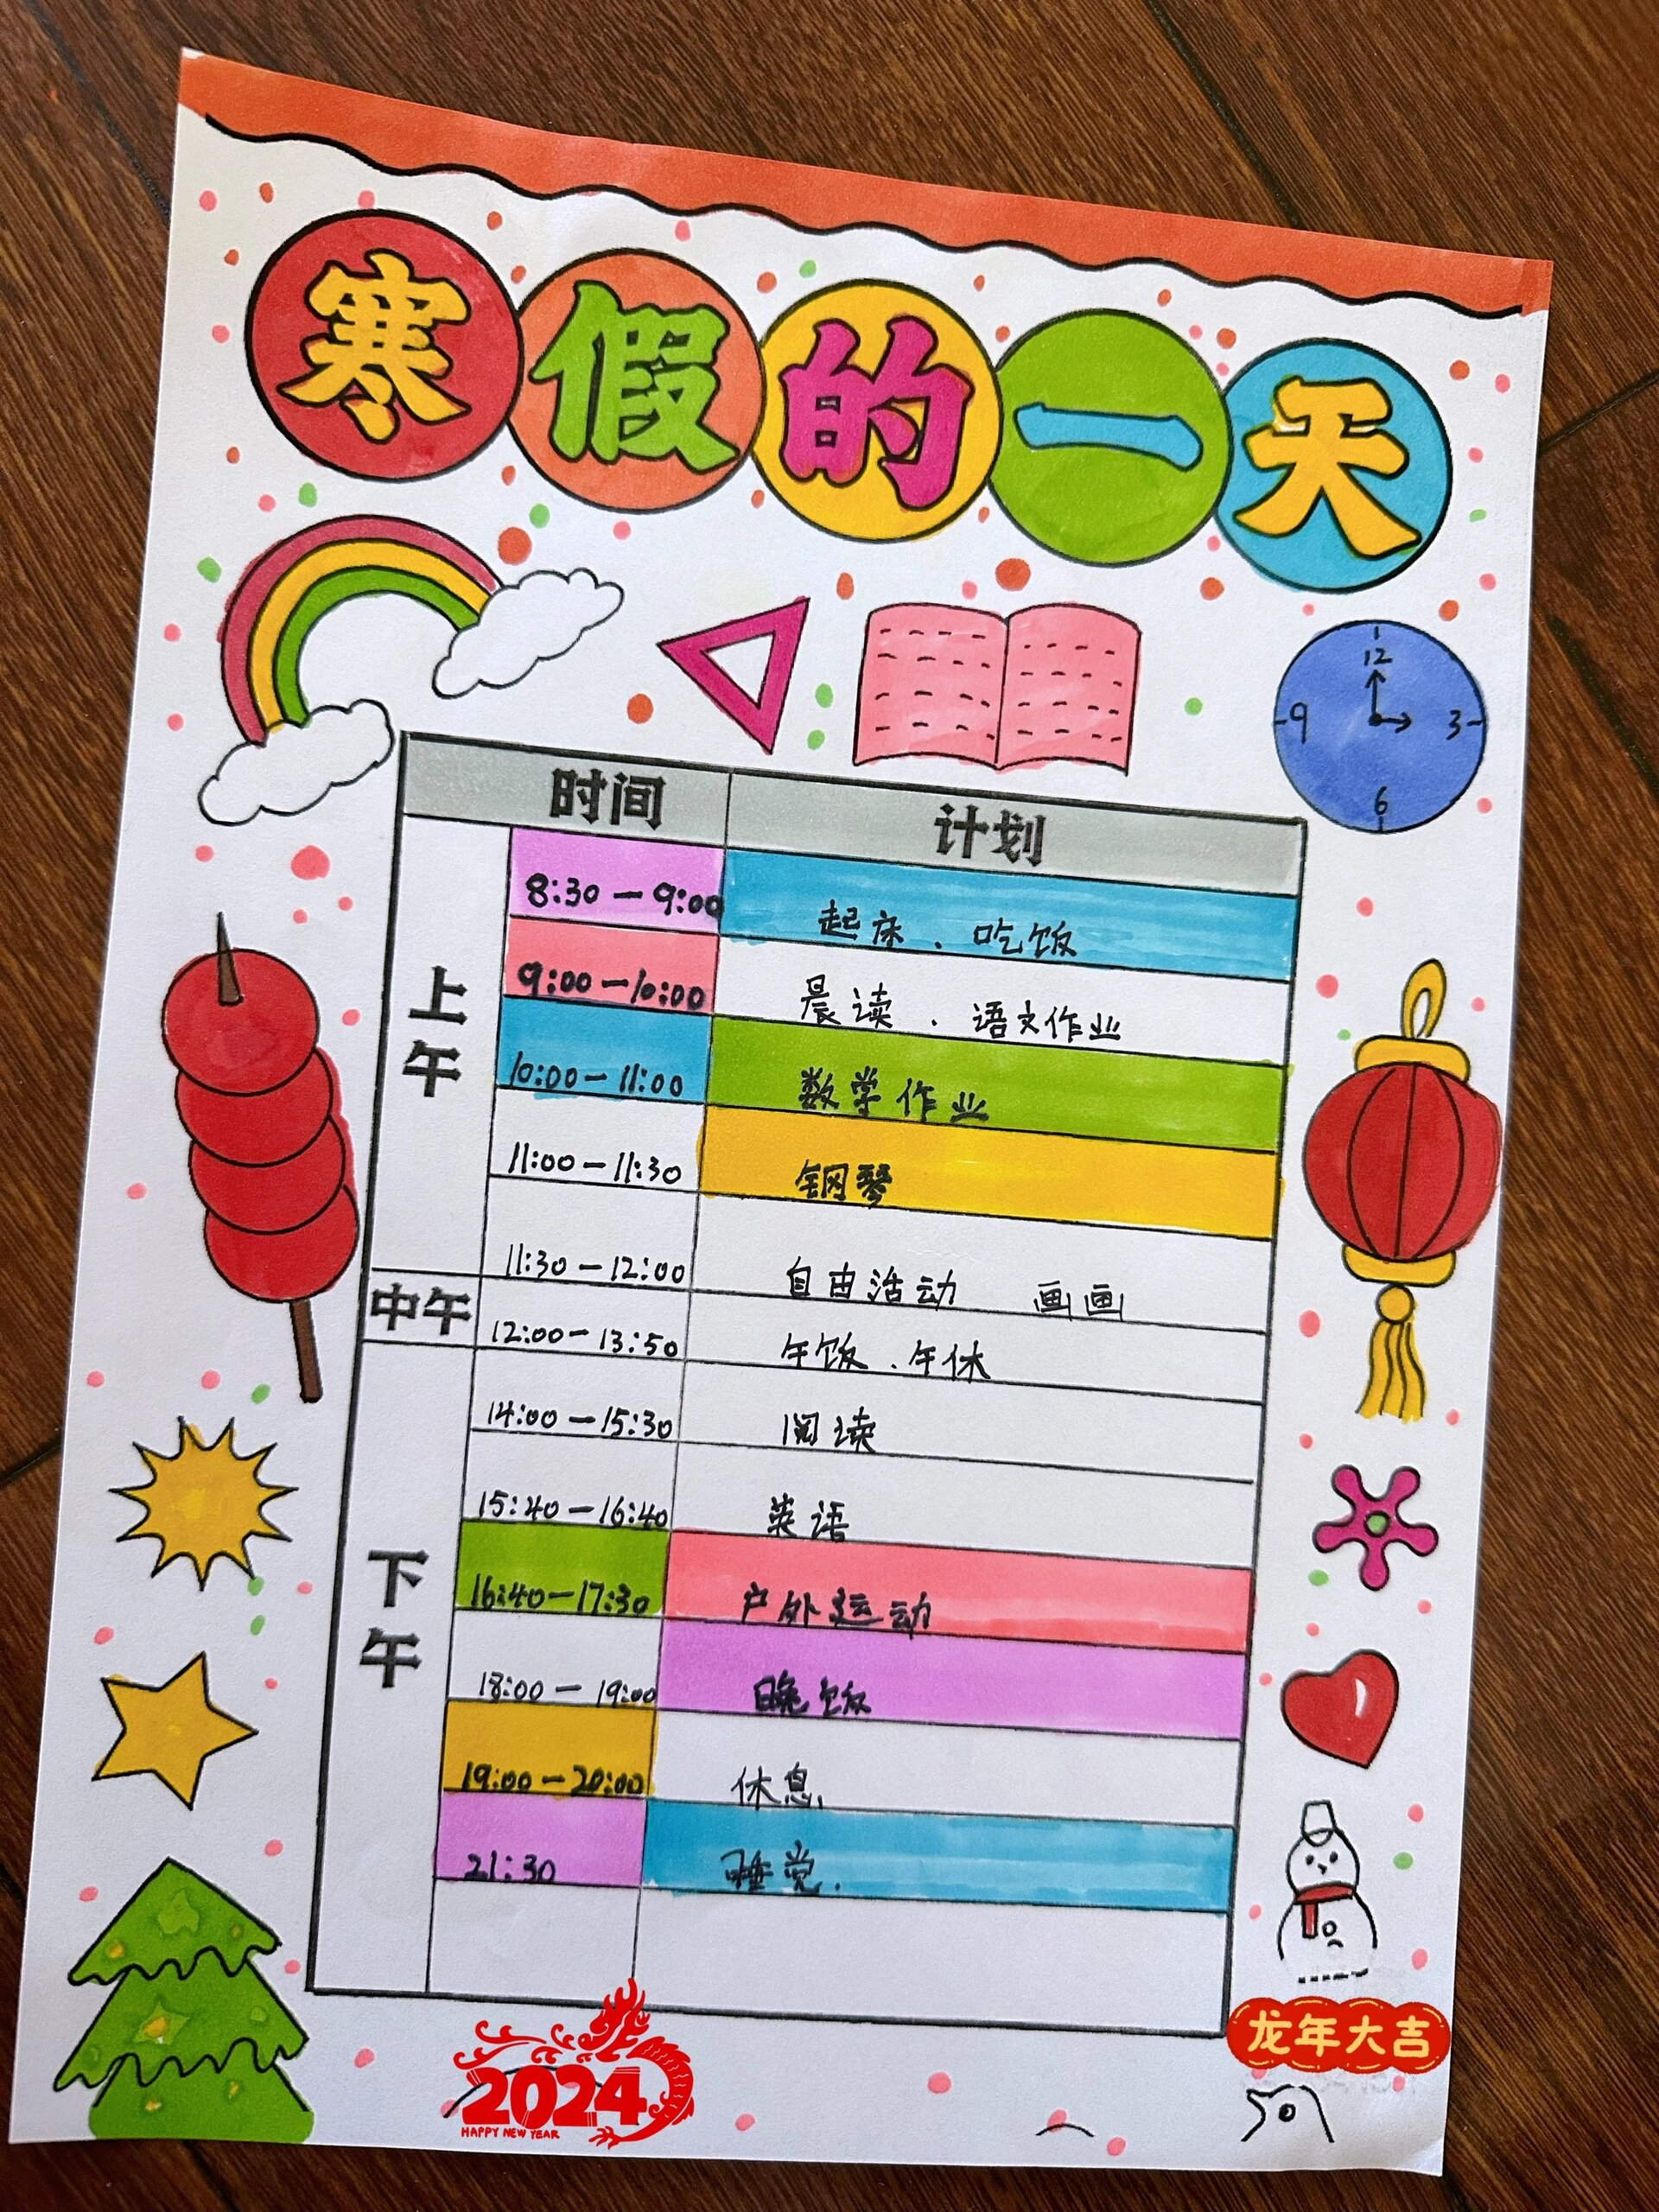 寒假的一天
12
9 3
6
时间 计划
上午
8:30—9:00 起床、吃饭
9:00—10:00 晨读、语文作业
10:00—11:00 数学作业
11:00—11:30 钢琴
11:30—12:00 自由活动 画画
中午 12:00—13:50 午饭、午休
下午
14:00—15:30 阅读
15:40—16:40 英语
16:40—17:30 户外运动
18:00—19:00 晚饭
19:00—20:00 休息
21:30 睡觉.
龙年大吉
2024
HAPPY NEW YEAR